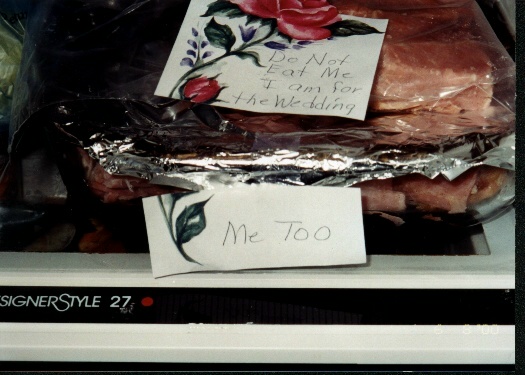 Do Not
Eat Me
I am for
the Wedding
Me Too
SIGNERSTYLE 27